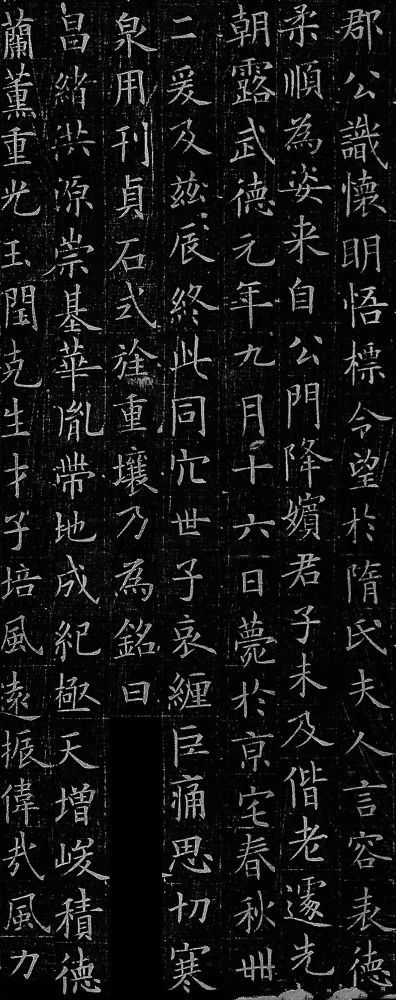 郡公識懷明悟標令望於隋氏夫人言容表德
柔順為姿来自公門降嬪君子未及偕老遽先
朝露武德元年九月十六日薨於京宅春秋卌
二爰及茲辰終此同穴世子哀纏巨痛思切寒
泉用刊貞石式旌重壤乃為銘曰
昌緒洪源崇基華胤帶地成紀極天增峻積德
蘭薰重光玉閏克生才子培風遠振偉哉風力